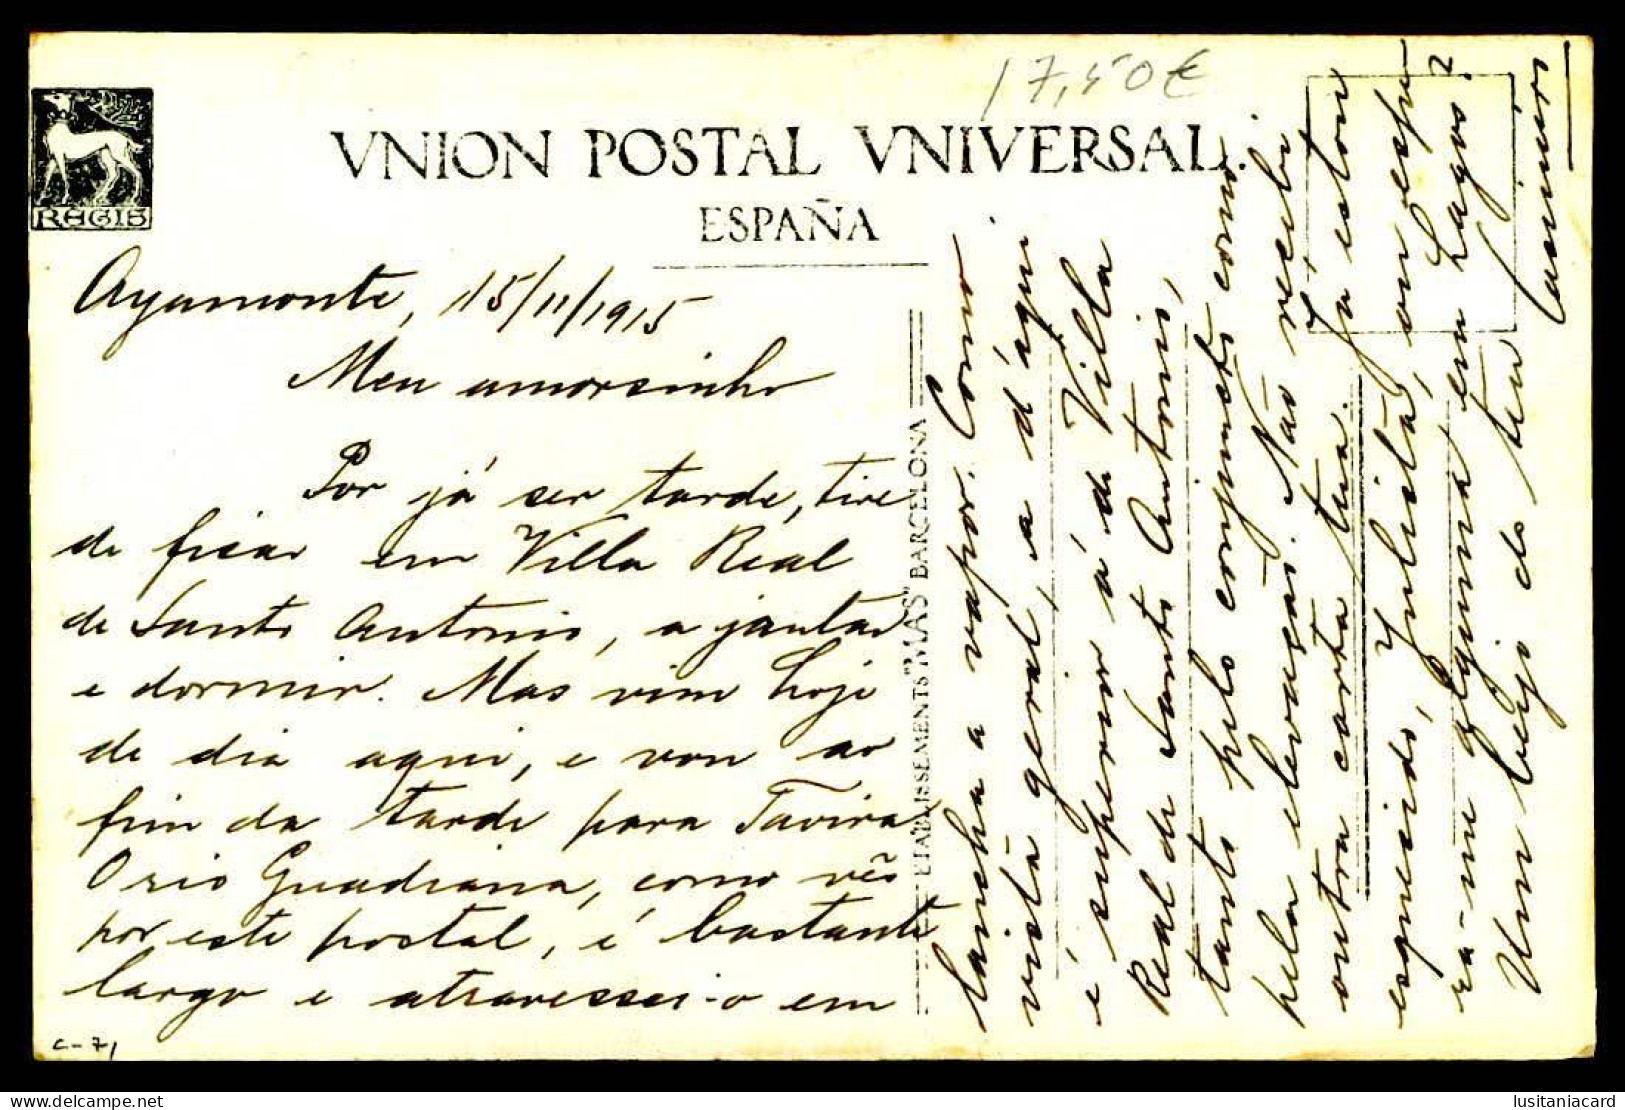 17,50€
VNION POSTAL VNIVERSAL.
ESPAÑA
REGIS
Ayamonte, 15/11/1915
Meu amorsinho
Por já ser tarde, tive
de ficar em Villa Real
de Santo Antonio, a jantar
e dormir. Mas vim hoje
de dia aqui, e vou ao
fim da tarde para Tavira
O rio Guadiana, como vês
por este postal, é bastante
largo e atravessei-o em
ETABLISSEMENTS "MAS" BARCELONA
lancha a vapor. Como
vista geral, a d'aqui
é superior á de Villa
Real de Santo Antonio,
tanto pelo conjuncto como
pela elevação. Não recebi
outra carta tua. Já estou
esquecido, Julieta, ou
ra-me alguma em Lagos?
Um beijo do teu
Casimiro
C-71
lusitaniacard